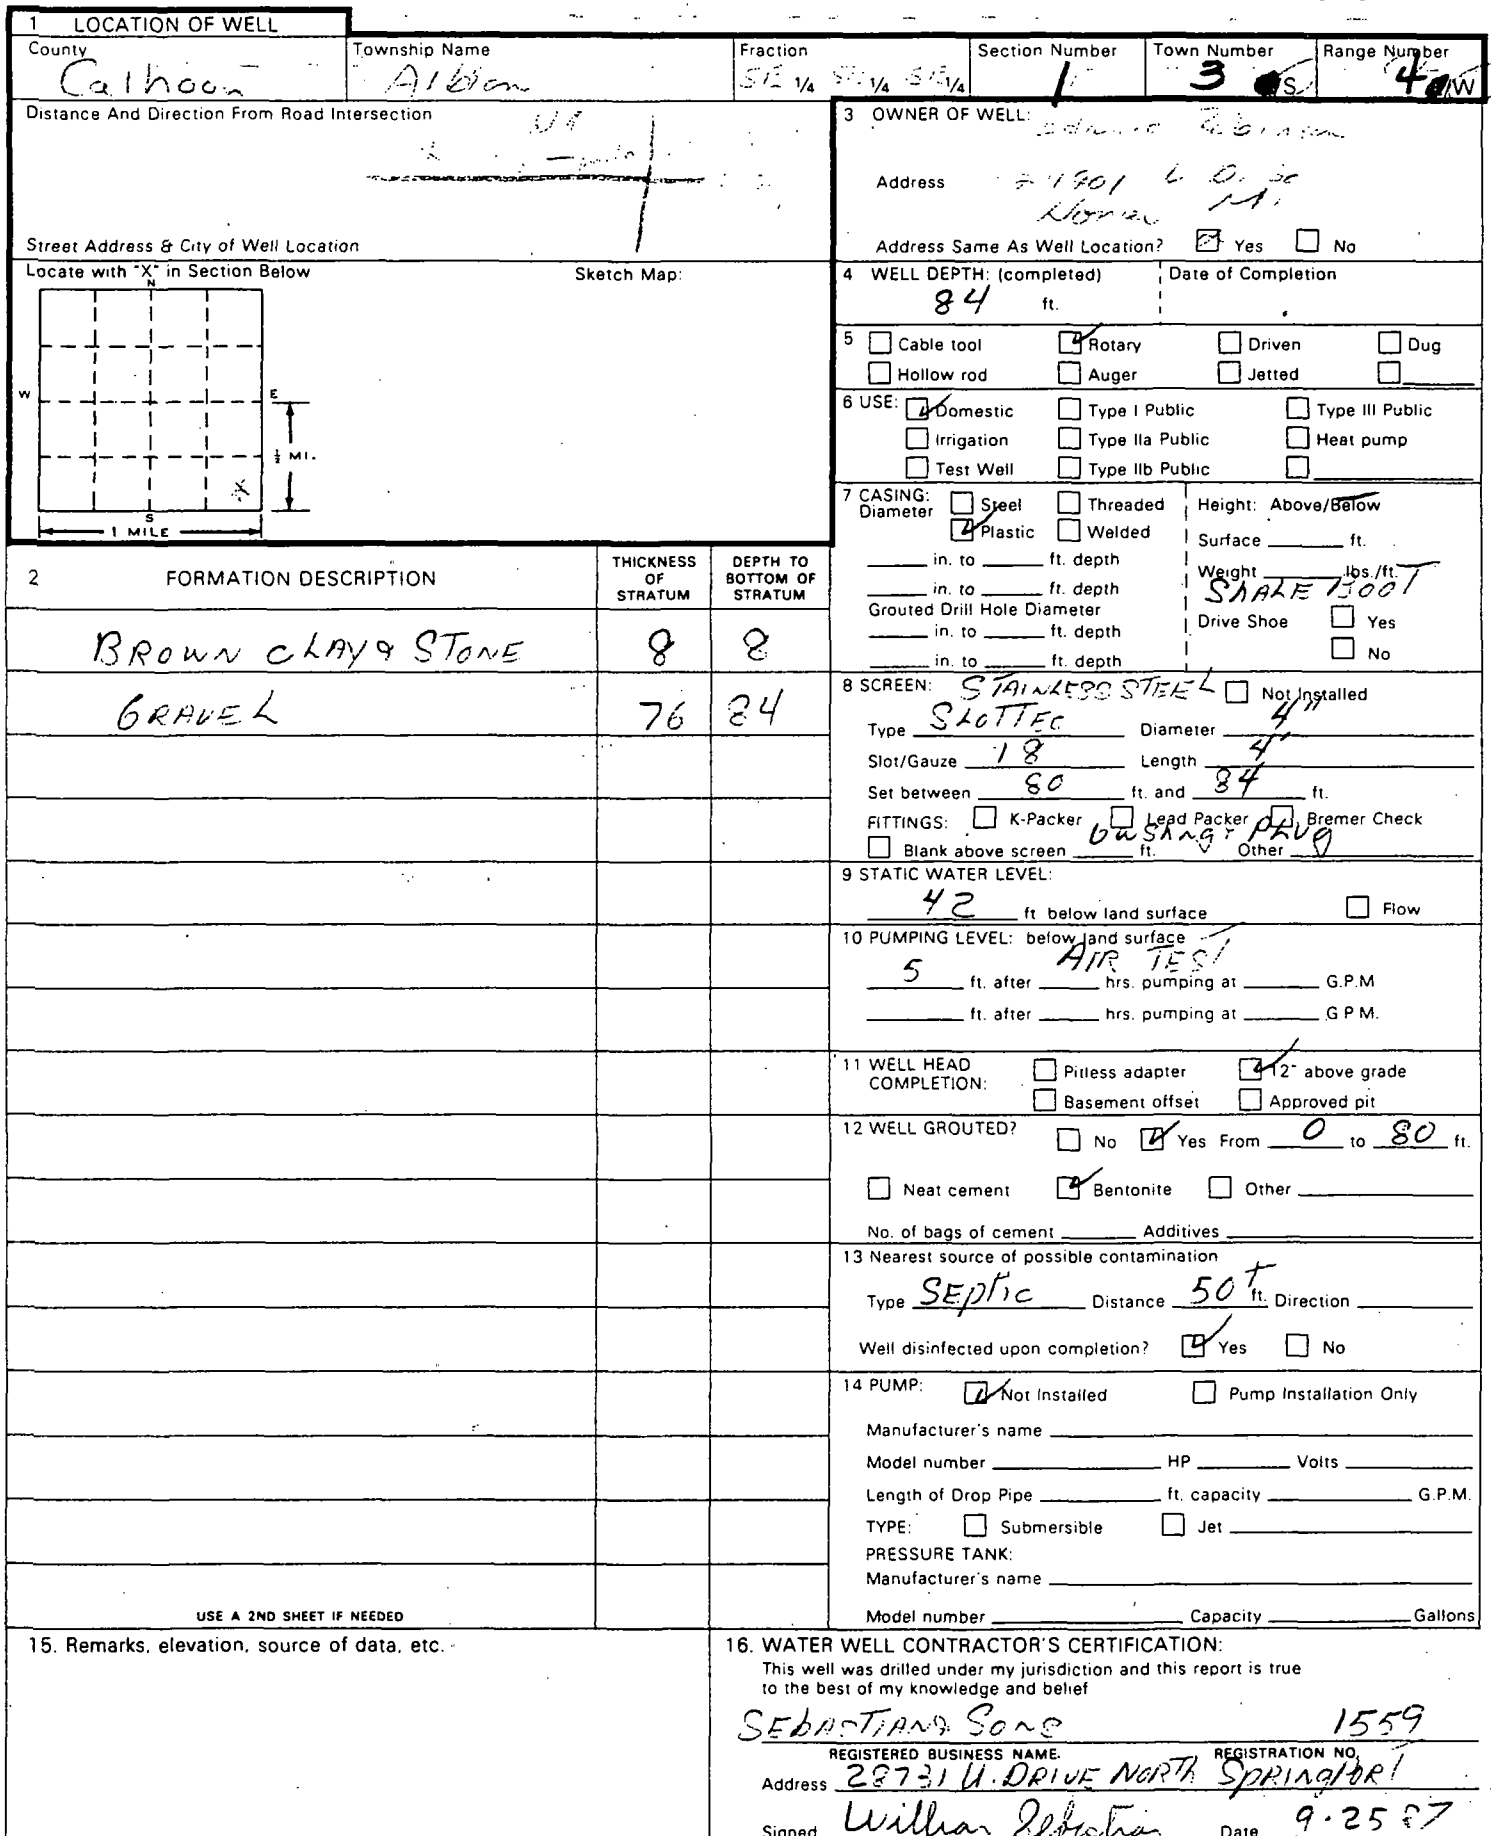 1 LOCATION OF WELL
County Township Name Fraction Section Number Town Number Range Number
Calhoun Albion SE 1/4 SE 1/4 SE 1/4 1 3 S 4 W
Distance And Direction From Road Intersection
Street Address & City of Well Location
Locate with "X" in Section Below Sketch Map:
N
W E
½ MI.
X
S
1 MILE
3 OWNER OF WELL:
Address
Mi
Address Same As Well Location? Yes No
4 WELL DEPTH: (completed) Date of Completion
84 ft.
5 Cable tool Rotary Driven Dug
Hollow rod Auger Jetted
6 USE: Domestic Type I Public Type III Public
Irrigation Type IIa Public Heat pump
Test Well Type IIb Public
7 CASING: Steel Threaded Height: Above/Below
Diameter Plastic Welded Surface ft.
in. to ft. depth Weight lbs./ft.
in. to ft. depth SHALE BOOT
Grouted Drill Hole Diameter Drive Shoe Yes
in. to ft. depth No
in. to ft. depth
2 FORMATION DESCRIPTION THICKNESS OF STRATUM DEPTH TO BOTTOM OF STRATUM
BROWN CLAY & STONE 8 8
GRAVEL 76 84
USE A 2ND SHEET IF NEEDED
8 SCREEN: STAINLESS STEEL Not Installed
Type SLOTTED Diameter 4"
Slot/Gauze 18 Length 4'
Set between 80 ft. and 84 ft.
FITTINGS: K-Packer Lead Packer Bremer Check
Blank above screen ft. Other PLUG
9 STATIC WATER LEVEL:
42 ft below land surface Flow
10 PUMPING LEVEL: below land surface
AIR TEST
5 ft. after hrs. pumping at G.P.M
ft. after hrs. pumping at G P M.
11 WELL HEAD COMPLETION: Pitless adapter 12" above grade
Basement offset Approved pit
12 WELL GROUTED? No Yes From 0 to 80 ft.
Neat cement Bentonite Other
No. of bags of cement Additives
13 Nearest source of possible contamination
Type SEPTIC Distance 50+ ft. Direction
Well disinfected upon completion? Yes No
14 PUMP: Not Installed Pump Installation Only
Manufacturer's name
Model number HP Volts
Length of Drop Pipe ft. capacity G.P.M.
TYPE: Submersible Jet
PRESSURE TANK:
Manufacturer's name
Model number Capacity Gallons
15. Remarks, elevation, source of data, etc.
16. WATER WELL CONTRACTOR'S CERTIFICATION:
This well was drilled under my jurisdiction and this report is true
to the best of my knowledge and belief
SEBASTIAN & SONS 1559
REGISTERED BUSINESS NAME. REGISTRATION NO.
Address 28731 U. DRIVE NORTH SPRINGPORT
Signed William Sebastian Date 9-25 87